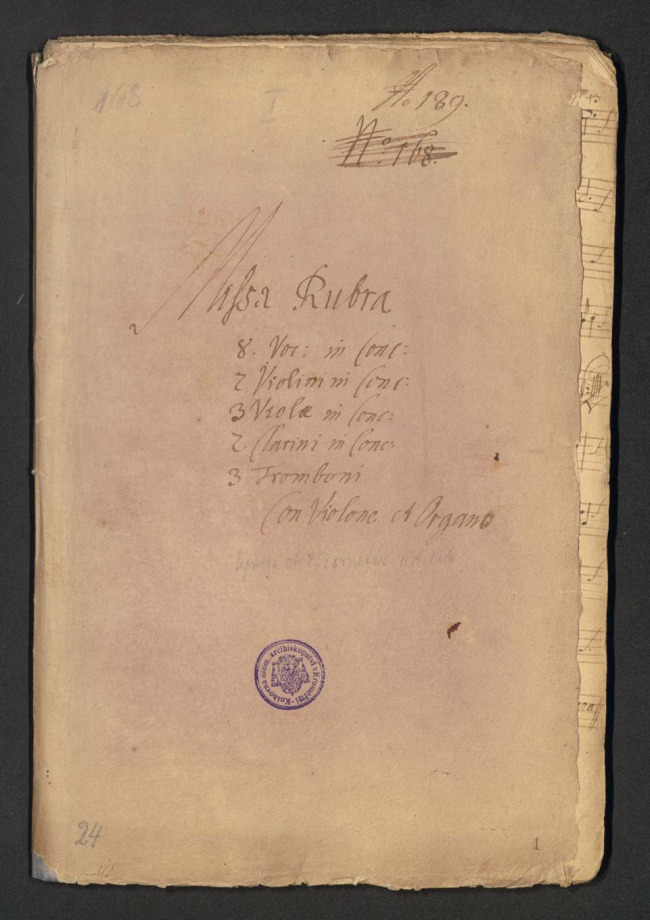 168
I
No 189.
No. 168.
Missa Rubra
8. Voc: in Conc:
2 Violini in Conc:
3 Violæ in Conc:
2. Clarini in Conc:
3 Tromboni
Con Violone et Organo
2 cornetti ad lib
Knihovna olom. arcibiskupství v Kroměříži
24
1